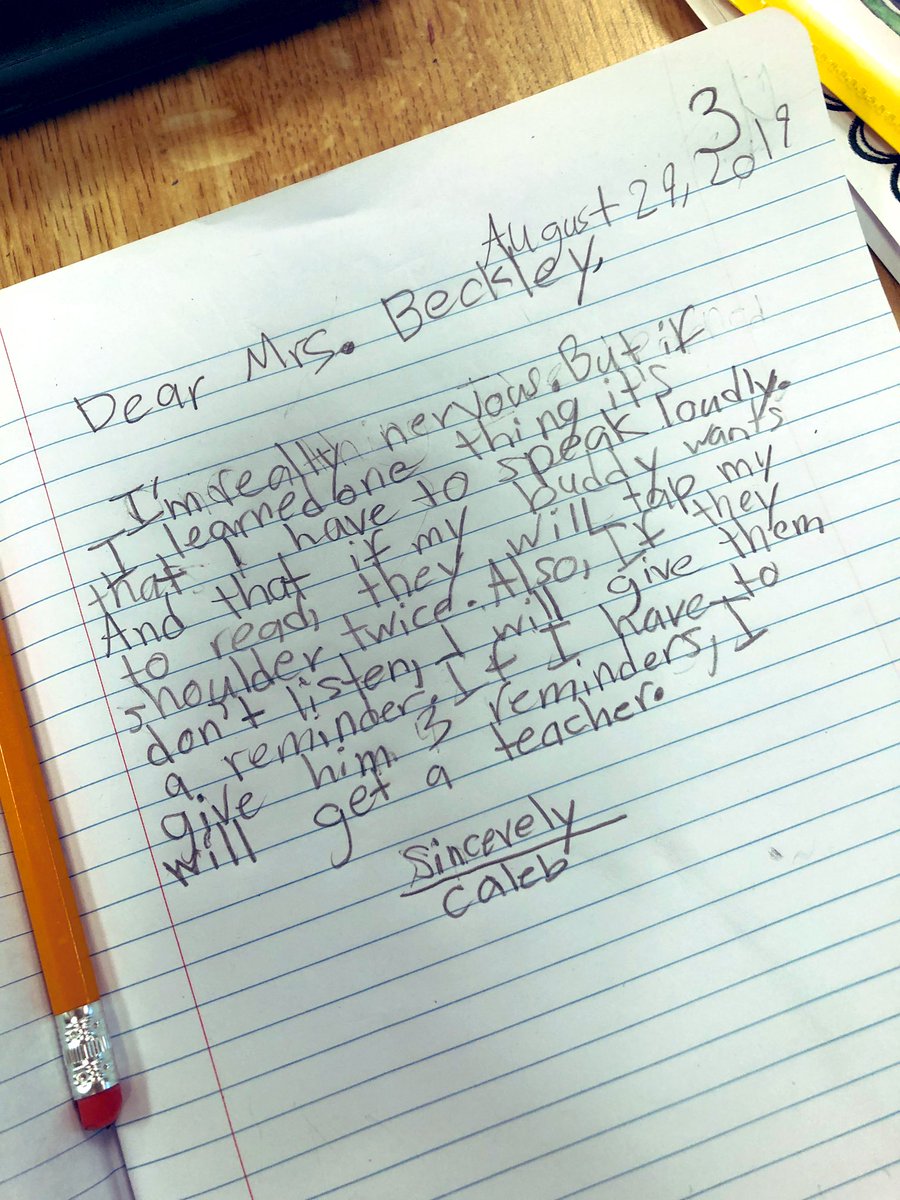 3
August 29, 2019
Dear Mrs. Beckley,
I'm really nervous. But if
I learned one thing it's
that I have to speak loudly.
And that if my buddy wants
to read, they will tap my
shoulder twice. Also, If they
don't listen, I will give them
a reminder. If I have to
give him 3 reminders, I
will get a teacher.
Sincerely
Caleb